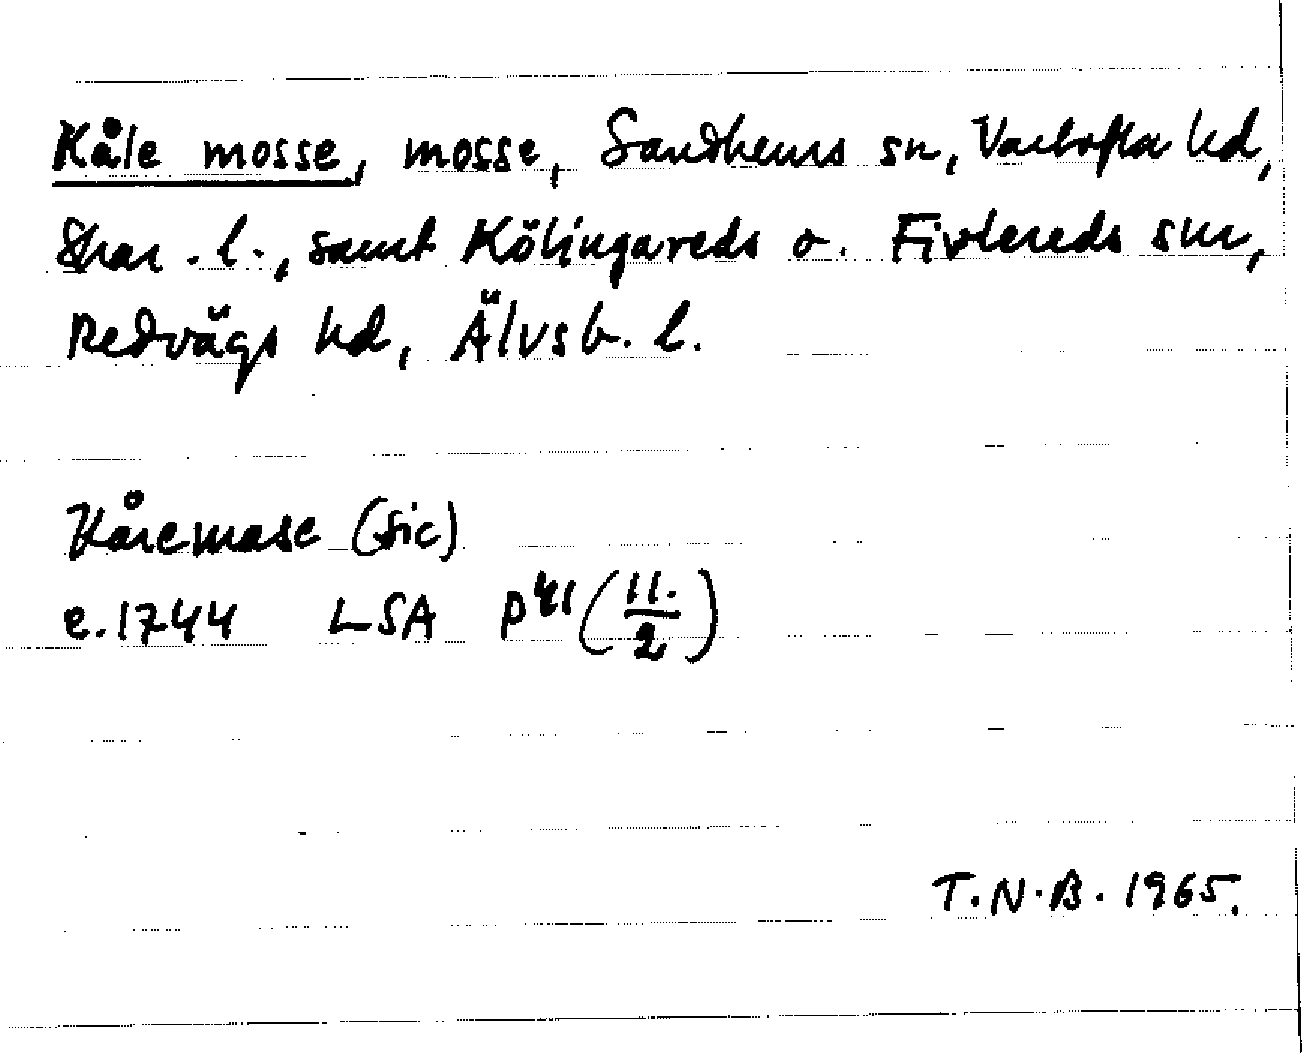 Kåle mosse, mosse, Sandhems sn, Vartofta hd,
Skar. l., samt Kölingareds o. Fivlereds snr,
Redvägs hd, Älvsb. l.
Kåremase (sic)
e. 1744 LSA P41 (11./2)
T.N.B. 1965.